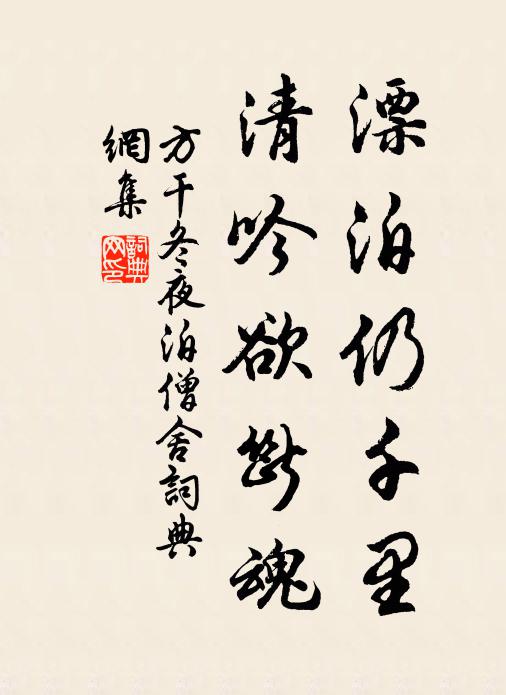 漂泊仍千里
清吟欲斷魂
方干冬夜泊僧舍詞典
網集
詞典
网印